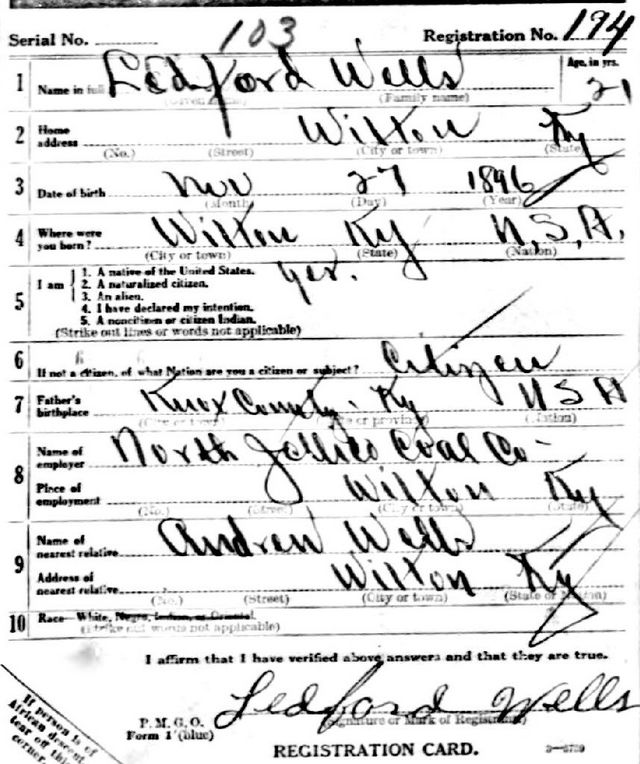 Serial No. 103 Registration No. 194
1 Name in full Ledford Wells Age, in yrs. 21
(Given name) (Family name)
2 Home address Wilton Ky
(No.) (Street) (City or town) (State)
3 Date of birth Nov 27 1896
(Month) (Day) (Year)
4 Where were you born? Wilton Ky U.S.A.
(City or town) (State) (Nation)
5 I am
1. A native of the United States. yes.
2. A naturalized citizen.
3. An alien.
4. I have declared my intention.
5. A noncitizen or citizen Indian.
(Strike out lines or words not applicable)
6 If not a citizen, of what Nation are you a citizen or subject? Citizen
7 Father's birthplace Knox County Ky U S A
(City or town) (State or province) (Nation)
8 Name of employer North Jellico Coal Co
Place of employment Wilton Ky
(No.) (Street) (City or town) (State)
9 Name of nearest relative Andrew Wells
Address of nearest relative Wilton Ky
(No.) (Street) (City or town) (State or Nation)
10 Race—White, Negro, Indian, or Oriental.
(Strike out words not applicable)
I affirm that I have verified above answers and that they are true.
Ledford Wells
P. M. G. O. (Signature or Mark of Registrant)
Form 1 (blue)
REGISTRATION CARD. 3—6759
If person is of
African descent,
tear off this
corner.